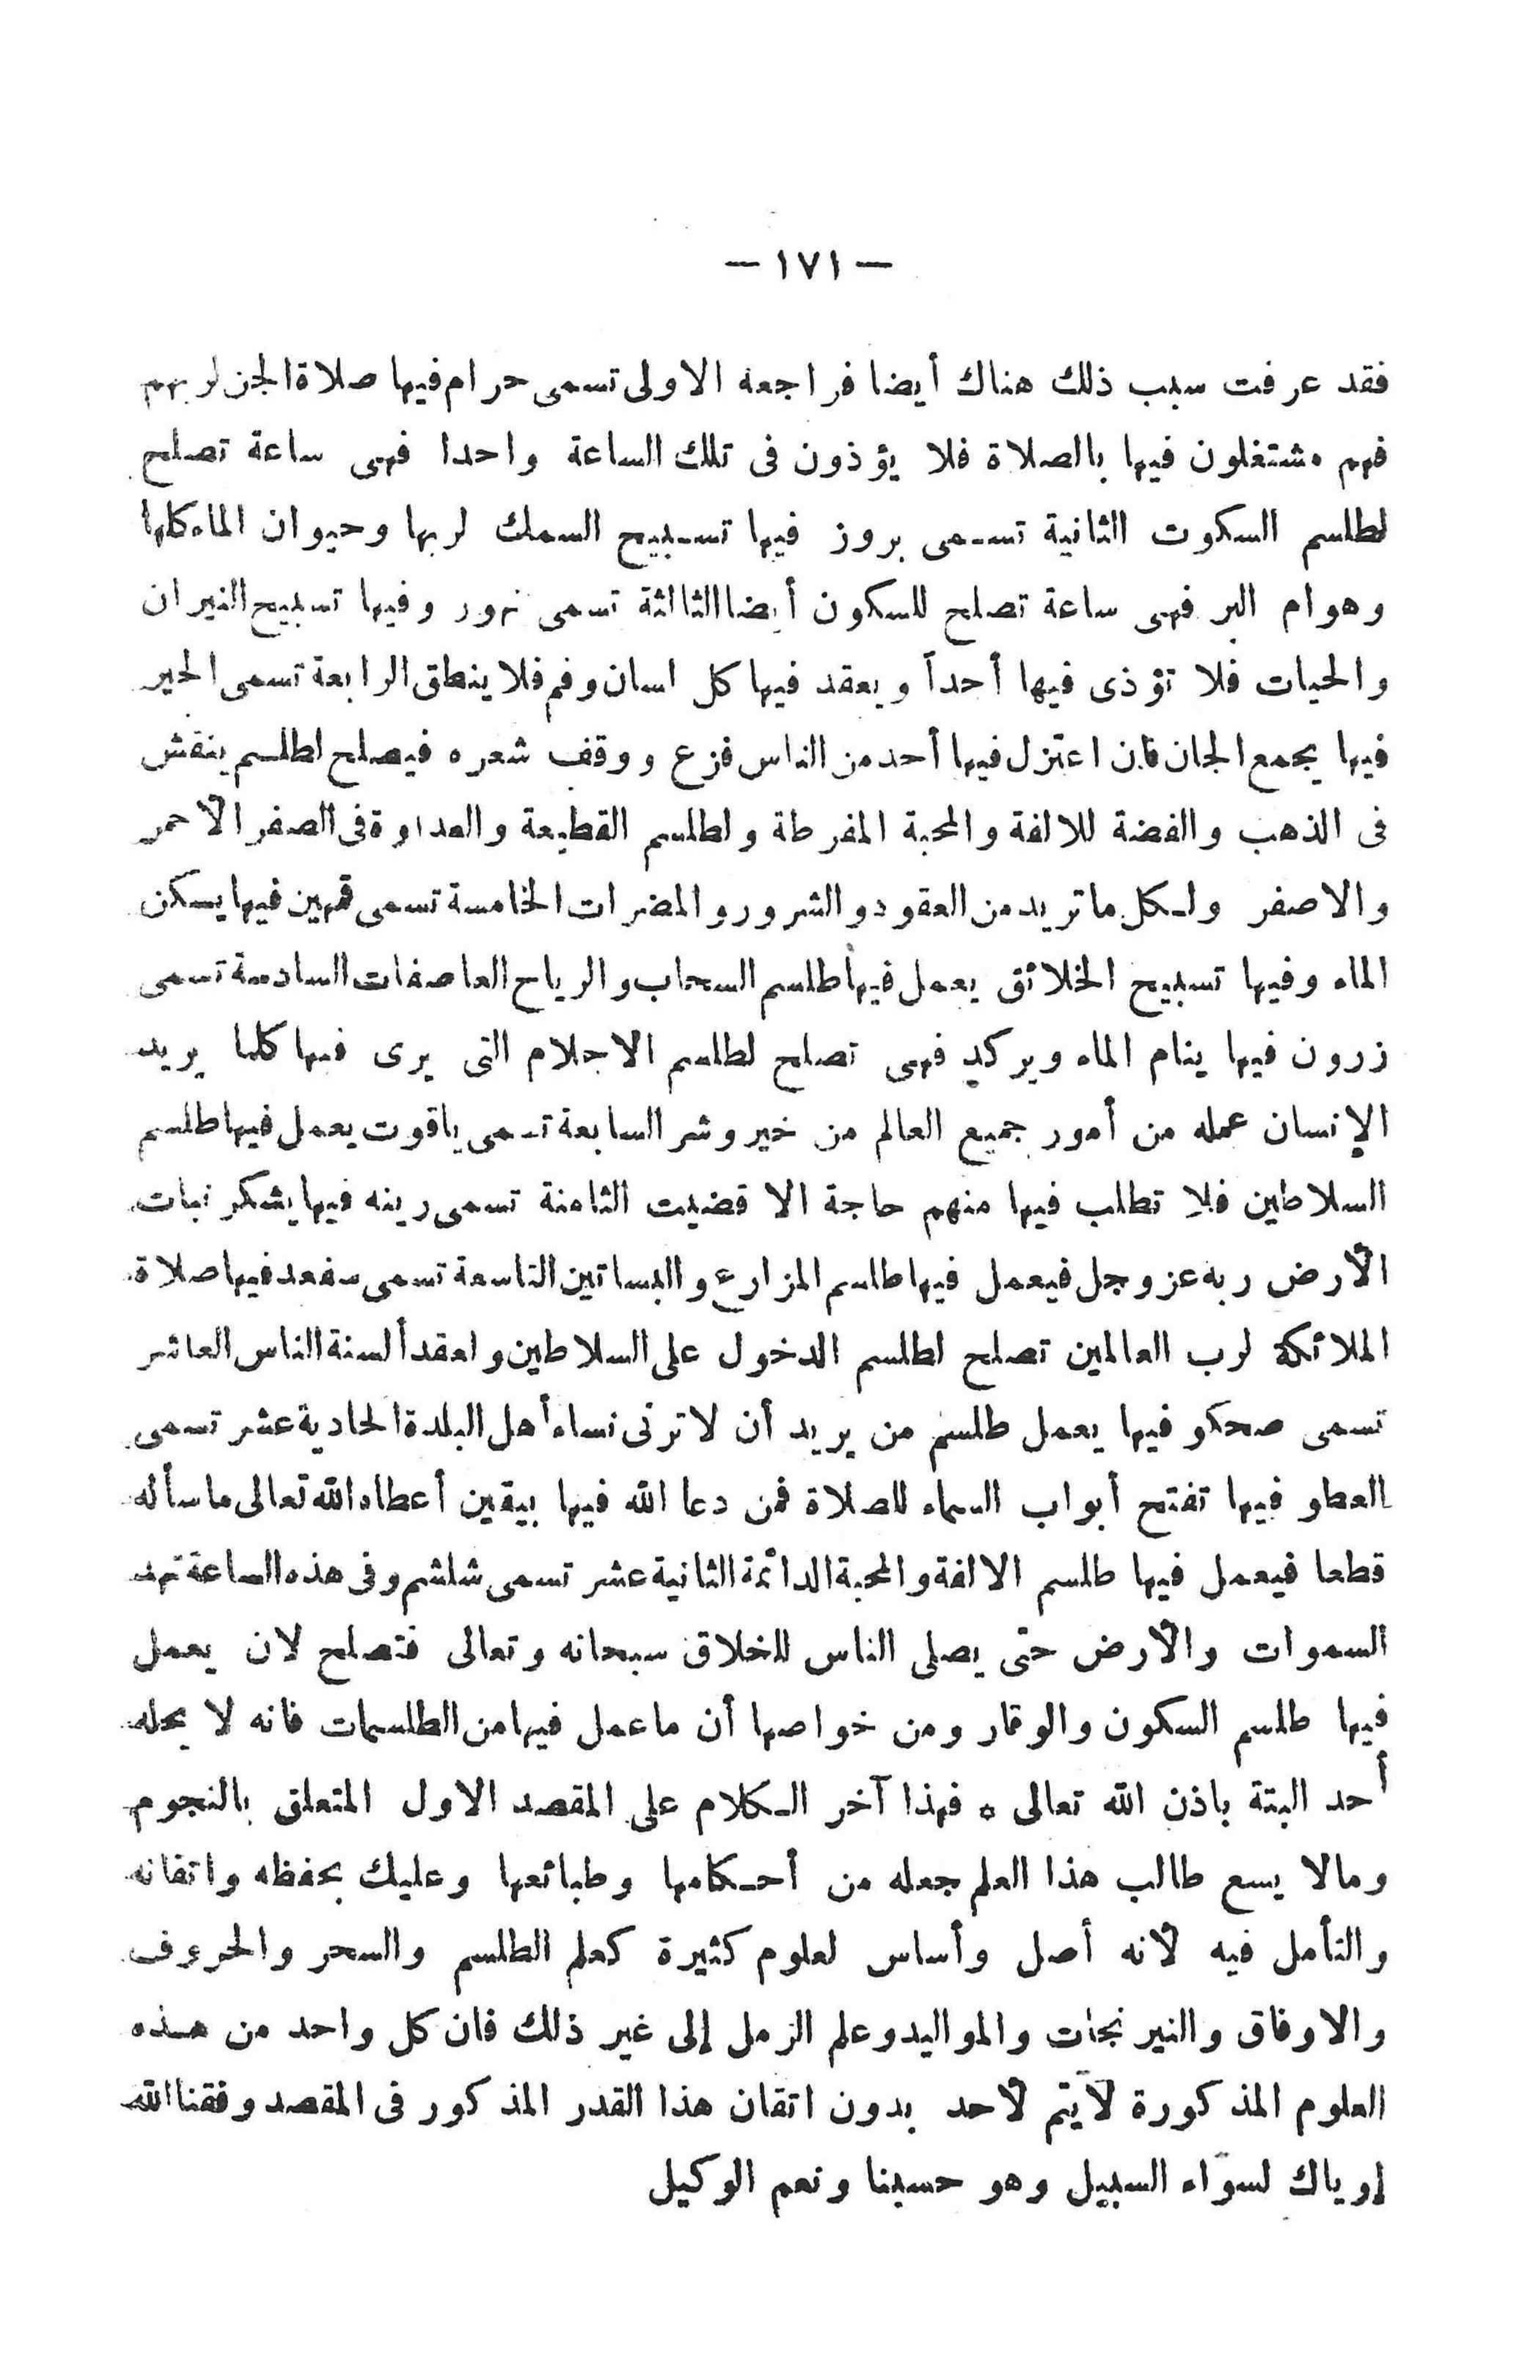 — ١٧١ —
فقد عرفت سبب ذلك هناك أيضا فراجعه الاولى تسمى حرام فيها صلاة الجن لربهم
فهم مشتغلون فيها بالصلاة فلا يؤذون فى تلك الساعة واحدا فهى ساعة تصلح
لطلسم السكوت الثانية تسمى بروز فيها تسبيح السمك لربها وحيوان الماء كلها
وهوام البر فهى ساعة تصلح للسكون أيضا الثالثة تسمى نهور وفيها تسبيح النيران
والحيات فلا تؤذى فيها أحداً ويعقد فيها كل لسان وفم فلا ينطق الرابعة تسمى الحير
فيها يجمع الجان فان اعتزل فيها أحد من الناس فزع ووقف شعره فيصلح لطلسم ينقش
فى الذهب والفضة للالفة والمحبة المفرطة ولطلسم القطيعة والعداوة فى الصفر الأحمر
والاصفر ولكل ما تريد من العقود والشرور والمضرات الخامسة تسمى قمهين فيها يسكن
الماء وفيها تسبيح الخلائق يعمل فيها طلسم السحاب والرياح العاصفات السادسة تسمى
زرون فيها ينام الماء ويركد فهى تصلح لطلسم الاحلام التى يرى فيها كلما يريد
الإنسان عمله من أمور جميع العالم من خير وشر السابعة تسمى ياقوت يعمل فيها طلسم
السلاطين فلا تطلب فيها منهم حاجة الا قضيت الثامنة تسمى رينه فيها يشكر نبات
الأرض ربه عز وجل فيعمل فيها طلسم المزارع والبساتين التاسعة تسمى سفعد فيها صلاة
الملائكة لرب العالمين تصلح لطلسم الدخول على السلاطين ولعقد ألسنة الناس العاشر
تسمى صحكو فيها يعمل طلسم من يريد أن لا ترنى نساء أهل البلدة الحادية عشر تسمى
العطو فيها تفتح أبواب السماء للصلاة فمن دعا الله فيها بيقين أعطاه الله تعالى ما سأله
قطعا فيعمل فيها طلسم الالفة والمحبة الدائمة الثانية عشر تسمى شلشم وفى هذه الساعة تهد
السموات والأرض حتى يصلى الناس للخلاق سبحانه وتعالى فتصلح لان يعمل
فيها طلسم السكون والوقار ومن خواصها أن ما عمل فيها من الطلسمات فانه لا يحله
أحد البتة باذن الله تعالى ه فهذا آخر الكلام على المقصد الاول المتعلق بالنجوم
ومالا يسع طالب هذا العلم جعله من أحكامها وطبائعها وعليك بحفظه واتقانه
والتأمل فيه لأنه أصل وأساس لعلوم كثيرة كعلم الطلسم والسحر والحروف
والاوفاق والنيرنجات والمواليد وعلم الرمل إلى غير ذلك فان كل واحد من هذه
العلوم المذكورة لا يتم لأحد بدون اتقان هذا القدر المذكور فى المقصد وفقنا الله
إوياك لسواء السبيل وهو حسبنا ونعم الوكيل